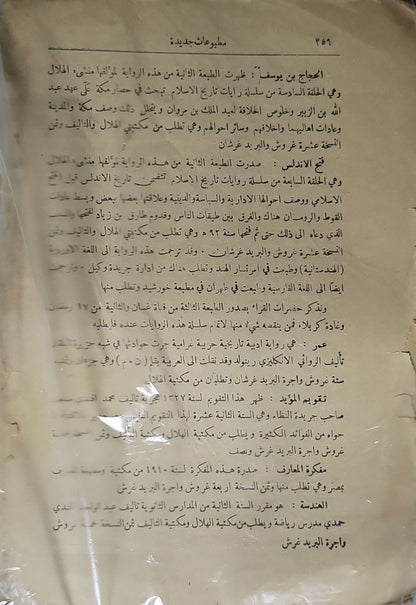 ٣٥٦ مطبوعات جديدة
الحجاج بن يوسف : ظهرت الطبعة الثانية من هذه الرواية لمؤلفها منشىء الهلال
وهي الحلقة السادسة من سلسلة روايات تاريخ الاسلام تبحث في حصار مكة على عهد عبد
الله بن الزبير وخلوص الخلافة لعبد الملك بن مروان ويتخلل ذلك وصف مكة والمدينة
وعادات اهاليهما واخلاقهم وسائر احوالهم وهي تطلب من مكتبتي الهلال والتأليف وثمن
النسخة عشرة غروش والبريد غرشان
فتح الاندلس : صدرت الطبعة الثانية من هذه الرواية لمؤلفها منشىء الهلال
وهي الحلقة السابعة من سلسلة روايات تاريخ الاسلام تتضمن تاريخ الاندلس قبل الفتح
الاسلامي ووصف احوالها الادارية والسياسة والدينية وعلاقاتها بعضها ببعض وبسط عادات
القوط والرومان هناك والفرق بين طبقات الناس وقدوم طارق بن زياد لفتحها والسبب
الذي دعاه الى ذلك حتى تم فتحها سنة ٩٢ ه وهي تطلب من مكتبتي الهلال والتأليف
النسخة عشرة غروش والبريد غرشان . وقد ترجمت هذه الرواية الى اللغة الاوردية
(الهندستانية) وطبعت في امرتسار الهند وتطلب هناك من ادارة جريدة وكيل . وترجمت
ايضاً الى اللغة الفارسية وطبعت في طهران في مطبعة خورشيد وتطلب منها
ونذكر حضرات القراء بصدور الطبعة الثالثة من فتاة غسان والثانية من ١٧ رمضان
وغادة كربلاء. فمن ينقصه شيء منها لاتمام سلسلة هذه الروايات عنده فليطلبه
عمر : هي رواية ادبية تاريخية حربية غرامية جرت حوادثها في شبه جزيرة
تأليف الروائي الانكليزي رينولد وقد نقلت الى العربية بقلم (ن . م) وهي
ستة غروش واجرة البريد غرشان وتطلبان من مكتبة الهلال
تقويم المؤيد : ظهر هذا التقويم لسنة ١٣٢٧ هجرية تأليف محمد افندي
صاحب جريدة النظام وهي السنة الثانية عشرة لهذا التقويم
حواه من الفوائد الكثيرة ويطلب من مكتبة الهلال ومكتبة التأليف وثمن
غروش واجرة البريد غرش ونصف
مفكرة المعارف : صدرت هذه المفكرة لسنة ١٩١٠ من مكتبة ومطبعة المعارف
بمصر وهي تطلب منها وثمن النسخة اربعة غروش واجرة البريد غرش
الهندسة : هو مقرر السنة الثانية من المدارس الثانوية تأليف عبد الواحد افندي
حمدي مدرس رياضة ويطلب من مكتبة الهلال ومكتبة التأليف ثمن النسخة خمسة غروش
واجرة البريد غرش